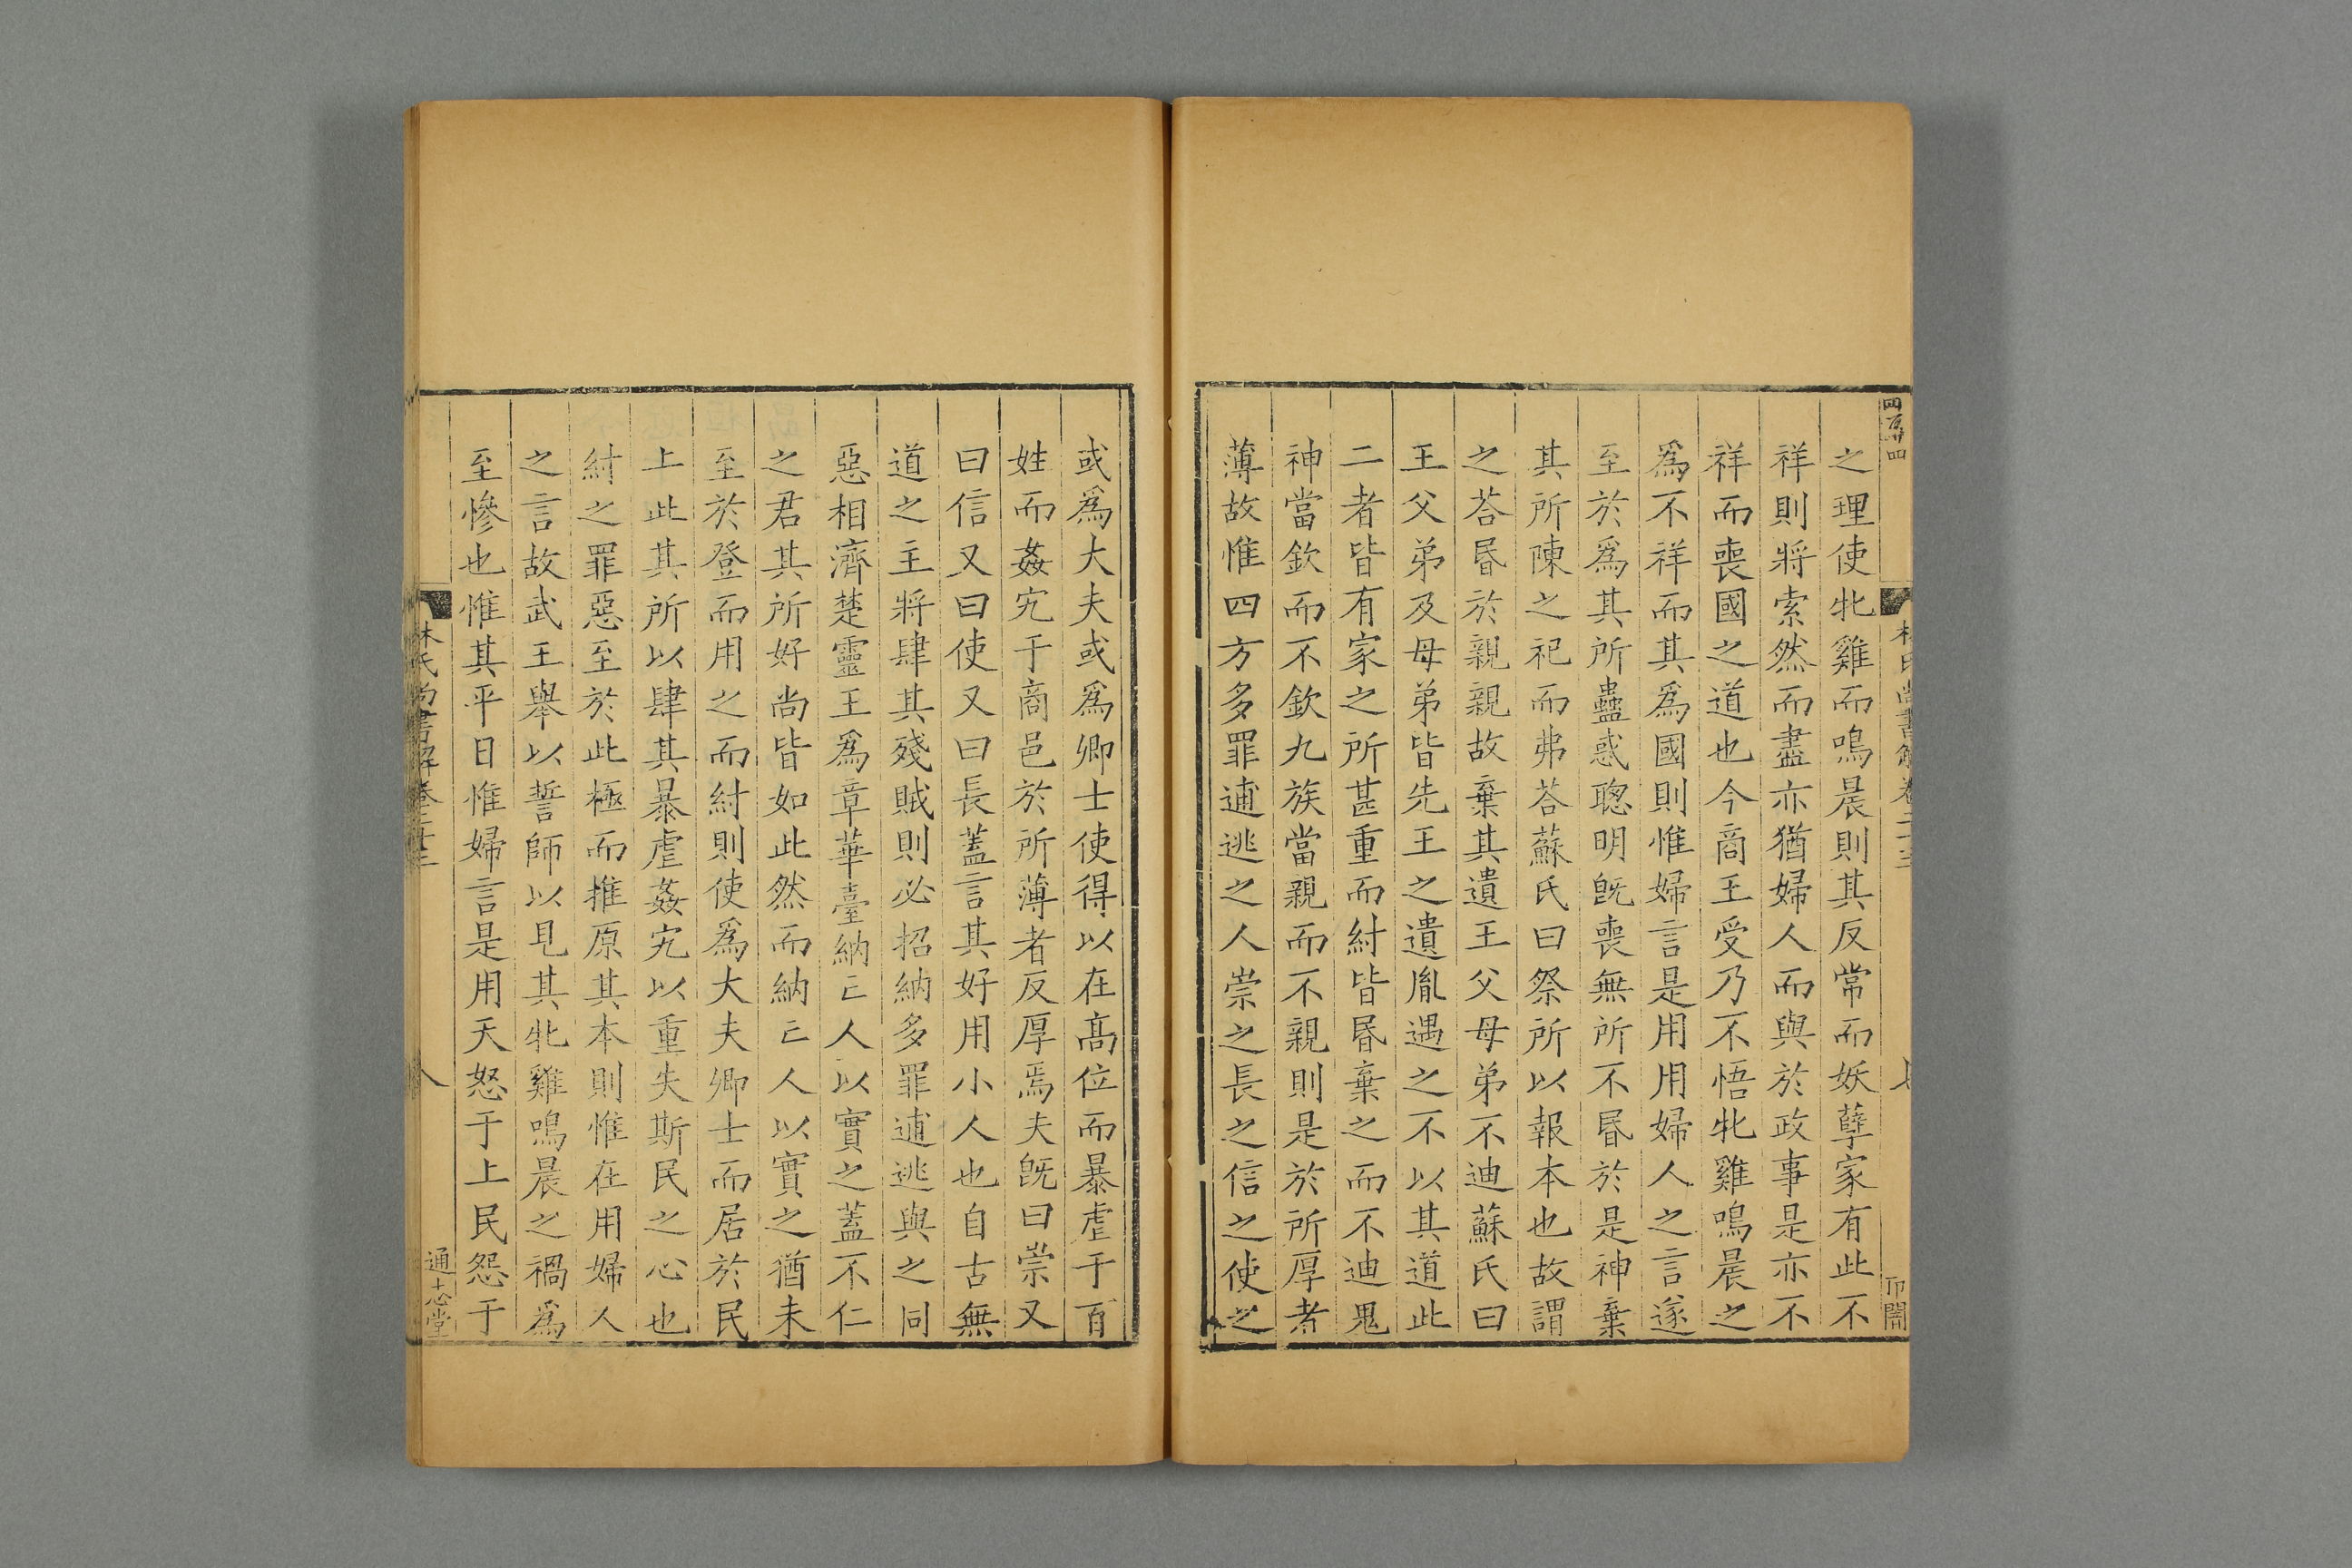 四百卅四
林氏尚書解卷二十三
七
之理使牝雞而鳴晨則其反常而妖孽家有此不
祥則將索然而盡亦猶婦人而與於政事是亦不
祥而喪國之道也今商王受乃不悟牝雞鳴晨之
爲不祥而其爲國則惟婦言是用用婦人之言遂
至於爲其所蠱惑聰明旣喪無所不昬於是神棄
其所陳之祀而弗荅蘇氏曰祭所以報本也故謂
之荅昬於親親故棄其遺王父母弟不迪蘇氏曰
王父弟及母弟皆先王之遺胤遇之不以其道此
二者皆有家之所甚重而紂皆昬棄之而不迪鬼
神當欽而不欽九族當親而不親則是於所厚者
薄故惟四方多罪逋逃之人崇之長之信之使之
或爲大夫或爲卿士使得以在髙位而暴虐于百
姓而姦宄于商邑於所薄者反厚焉夫旣曰崇又
曰信又曰使又曰長蓋言其好用小人也自古無
道之主將肆其殘賊則必招納多罪逋逃與之同
惡相濟楚靈王爲章華臺納亡人以實之蓋不仁
之君其所好尚皆如此然而納亡人以實之猶未
至於登而用之而紂則使爲大夫卿士而居於民
上此其所以肆其暴虐姦宄以重失斯民之心也
紂之罪惡至於此極而推原其本則惟在用婦人
之言故武王舉以誓師以見其牝雞鳴晨之禍爲
至慘也惟其平日惟婦言是用天怒于上民怨于
林氏尚書解卷二十三
八
通志堂